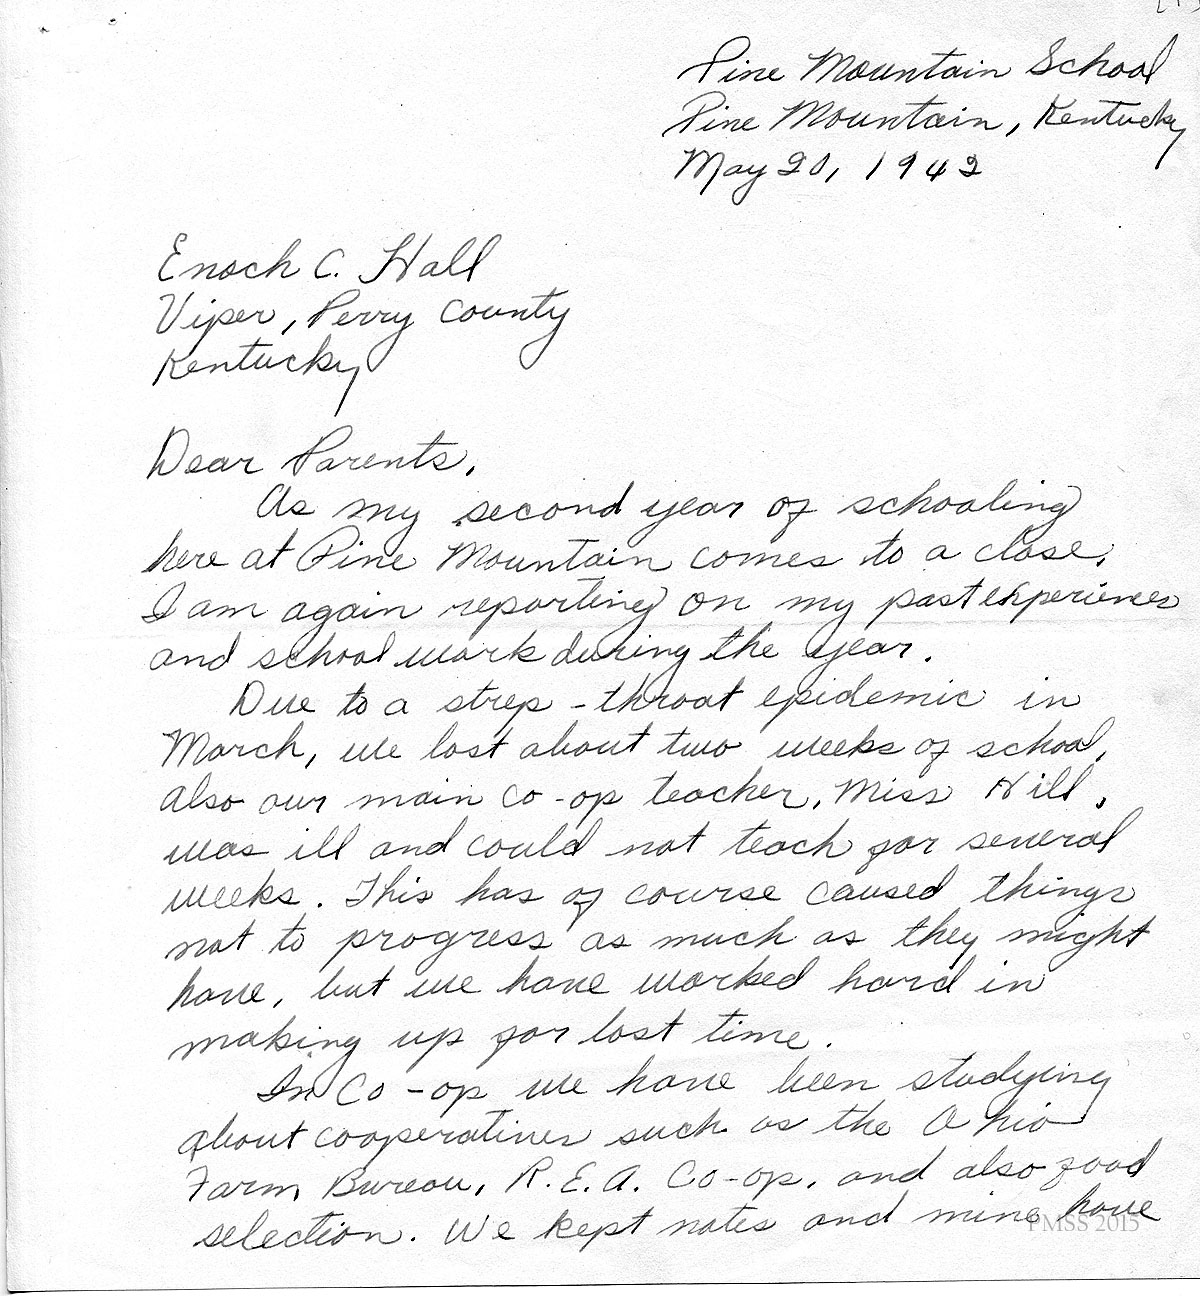 Pine Mountain School
Pine Mountain, Kentucky
May 20, 1942
Enoch C. Hall
Viper, Perry County
Kentucky
Dear Parents,
As my second year of schooling
here at Pine Mountain comes to a close,
I am again reporting on my past experiences
and school work during the year.
Due to a strep-throat epidemic in
March, we lost about two weeks of school,
also our main co-op teacher, Miss Hill,
was ill and could not teach for several
weeks. This has of course caused things
not to progress as much as they might
have, but we have worked hard in
making up for lost time.
In Co-op we have been studying
about cooperatives such as the Ohio
Farm Bureau, R.E.A. Co-op, and also food
selection. We kept notes and mine have
PMSS 2015